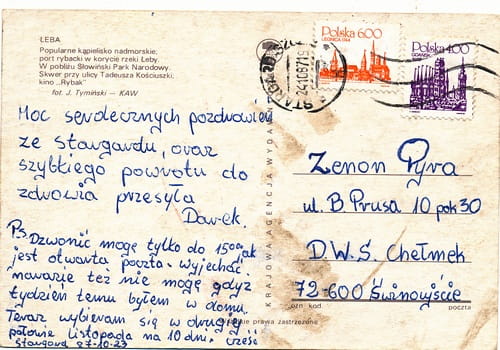 ŁEBA
Popularne kąpielisko nadmorskie;
port rybacki w korycie rzeki Łeby.
W pobliżu Słowiński Park Narodowy.
Skwer przy ulicy Tadeusza Kościuszki,
kino „Rybak”
fot. J. Tymiński — KAW
Moc serdecznych pozdrowień
ze Stargardu, oraz
szybkiego powrotu do
zdrowia przesyła
Darek.
P.S. Dzwonić mogę tylko do 15 00 jak
jest otwarta poczta. Wyjechać
narazie też nie mogę gdyż
tydzień temu byłem w domu.
Teraz wybieram się w drugiej
połowie listopada na 10 dni. Cześć
Stargard 27-10-23
KRAJOWA AGENCJA WYDAWNICZA
prawa zastrzeżone
Polska 6.00
LEGNICA
Polska 4.00
GDAŃSK
STARGARD
Zenon Pyra
ul. B Prusa 10 pok 30
D.W.S. Chełmek
72-600 Świnoujście
ozn. kod.
poczta